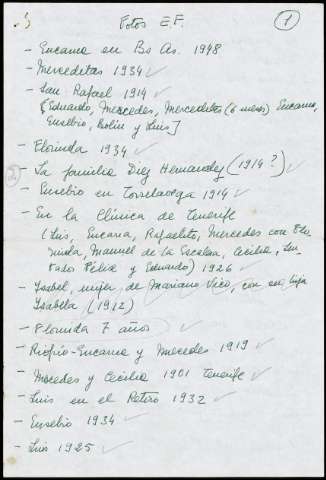 Fotos E.F. 1
- Encarna en Bs As. 1948
- Merceditas 1934
- San Rafael 1914
[Eduardo, Mercedes, Merceditas (6 meses) Encarna,
Eusebio, Isolin y Luis]
- Florinda 1934
- La familia Diez Hernandez (1914?)
- Eusebio en Torrelavega 1914
- En la Clínica de Tenerife
(Luis, Encarna, Rafaelito, Mercedes con Flo
rinda, Manuel de la Escalera, Cecilia,
Félix y Eduardo) 1926
- Isabel, mujer de Mariano Vico, con su hija
Isabela (1912)
- Florinda 7 años
- Riofrío - Encarna y Mercedes 1919
- Mercedes y Cecilia 1901 Tenerife
- Luis en el Retiro 1932
- Eusebio 1934
- Luis 1925